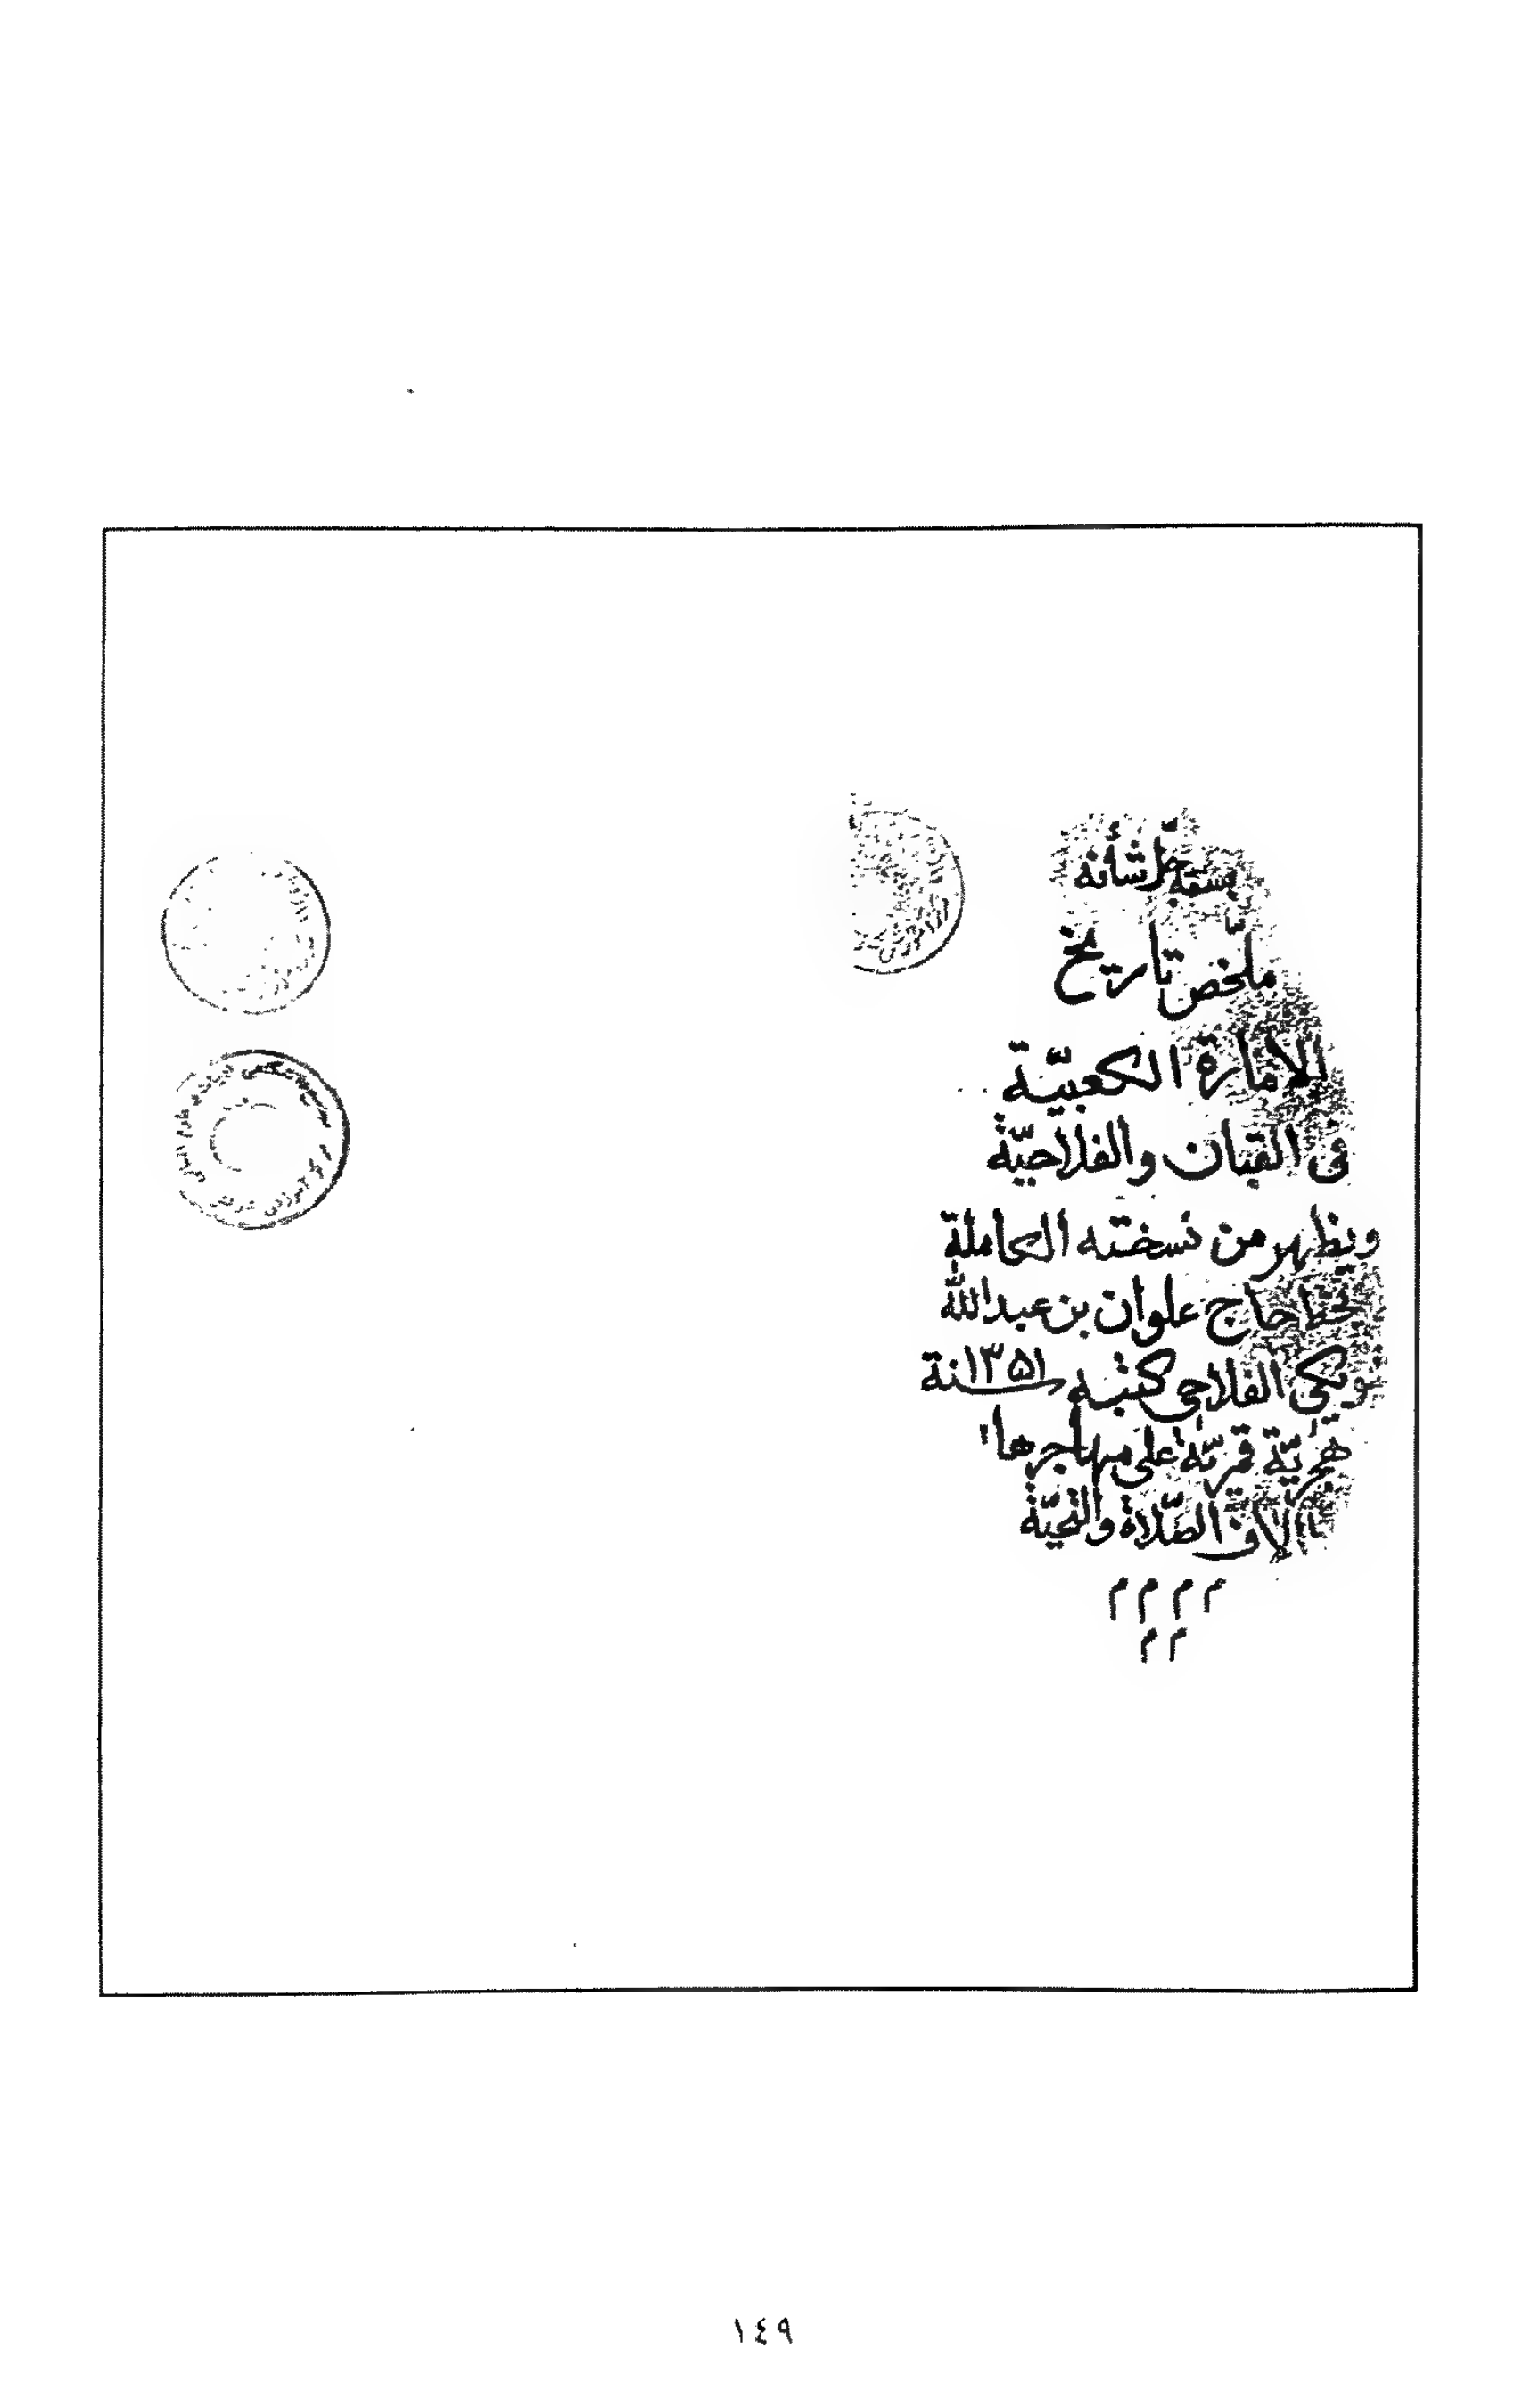 بسمه جلّ شأنه
ملخّص تاريخ
الامارة الكعبيّة
فى القبان والفلاحيّة
ويظهر من نسخته الكاملة
بخط حاج علوان بن عبدالله
شويكى الفلاحى كتبه سنة ١٣۵١
هجريّة قمريّة على مهاجرها
الاف الصّلاة والتحيّة
م م م م
م م
١٤٩